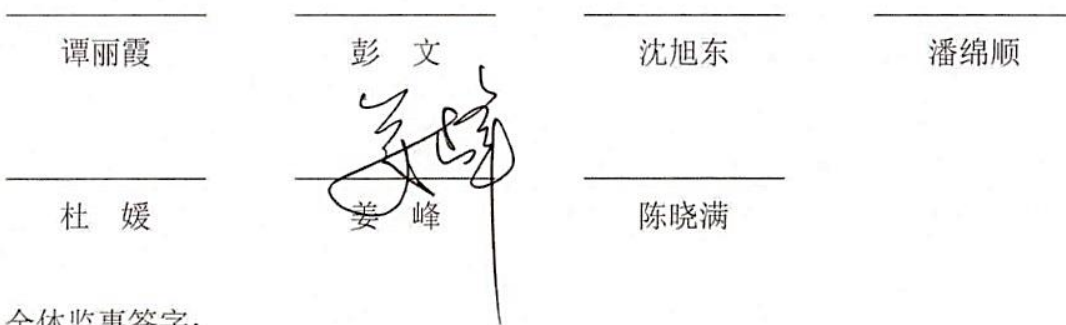 谭丽霞 彭 文 沈旭东 潘绵顺
姜峰
杜 媛 姜 峰 陈晓满
全体监事签字: